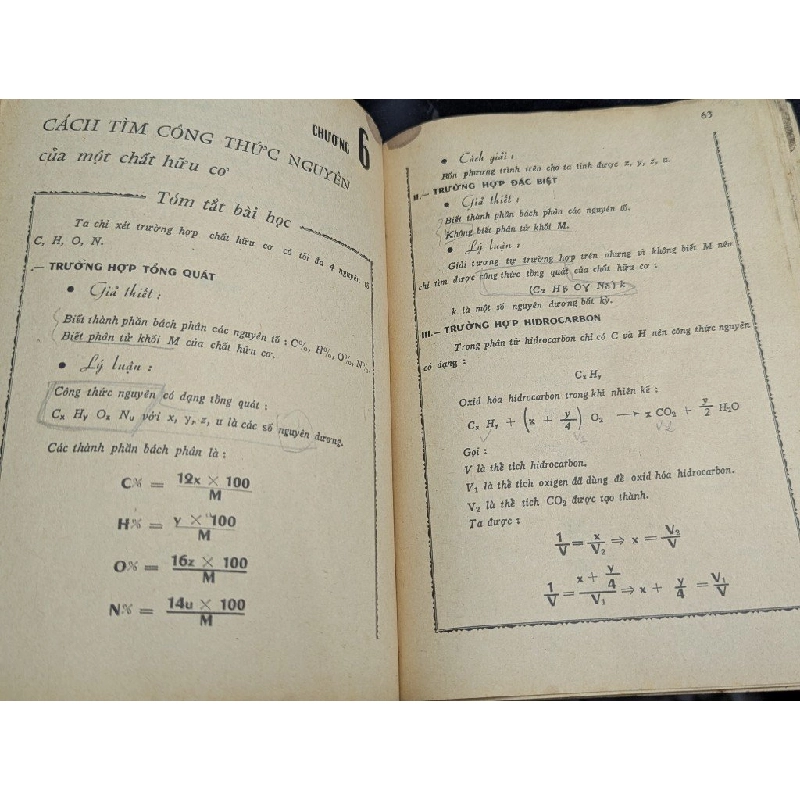 CHƯƠNG 6
CÁCH TÌM CÔNG THỨC NGUYÊN
của một chất hữu cơ
Tóm tắt bài học
Ta chỉ xét trường hợp chất hữu cơ có tối đa 4 nguyên tố
C, H, O, N.
I.— TRƯỜNG HỢP TỔNG QUÁT
• Giả thiết :
Biết thành phần bách phân các nguyên tố : C%, H%, O%, N%.
Biết phân tử khối M của chất hữu cơ.
• Lý luận :
Công thức nguyên có dạng tổng quát :
Cx Hy Oz Nu với x, y, z, u là các số nguyên dương.
Các thành phần bách phân là :
C% = 12x × 100 / M
H% = y × 100 / M
O% = 16z × 100 / M
N% = 14u × 100 / M
63
• Cách giải :
Bốn phương trình trên cho ta tính được x, y, z, u.
II.— TRƯỜNG HỢP ĐẶC BIỆT
• Giả thiết :
Biết thành phần bách phân các nguyên tố.
Không biết phân tử khối M.
• Lý luận :
Giải tương tự trường hợp trên nhưng vì không biết M nên
chỉ tìm được công thức tổng quát của chất hữu cơ :
k là một số nguyên dương bất kỳ.
III.— TRƯỜNG HỢP HIDROCARBON
Trong phân tử hidrocarbon chỉ có C và H nên công thức nguyên
có dạng :
Cx Hy
Oxid hóa hidrocarbon trong khí nhiên kế :
Cx Hy + (x + y/4) O2 → x CO2 + y/2 H2O
Gọi :
V là thể tích hidrocarbon.
V1 là thể tích oxigen đã dùng để oxid hóa hidrocarbon.
V2 là thể tích CO2 được tạo thành.
Ta được :
1/V = x/V2 ⇒ x = V2/V
1/V = (x + y/4)/V1 ⇒ x + y/4 = V1/V